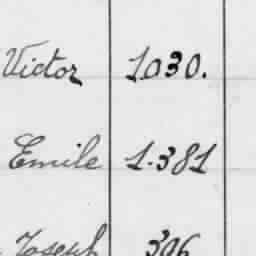 Victor 1030.
Emile 1.381
Joseph 306